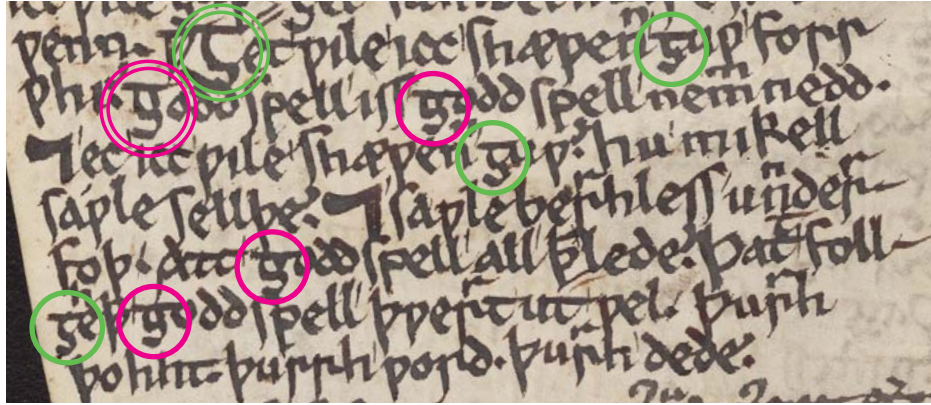 ƿenn. ⁊ Ȝet ƿile icc shæƿenn ȝuƿ forr
ƿhi. goddspell iss goddspell nemmnedd.
⁊ ec icc ƿile shæƿenn ȝuƿ. hu mikell
saƿle sellþe. ⁊ saƿle berrhless unnderr
foþ. att goddspell all þe lede. þatt foll
ȝeþþ goddspell þƿerrt ut ƿel. þurrh
þohht. þurrh ƿord. þurrh dede.